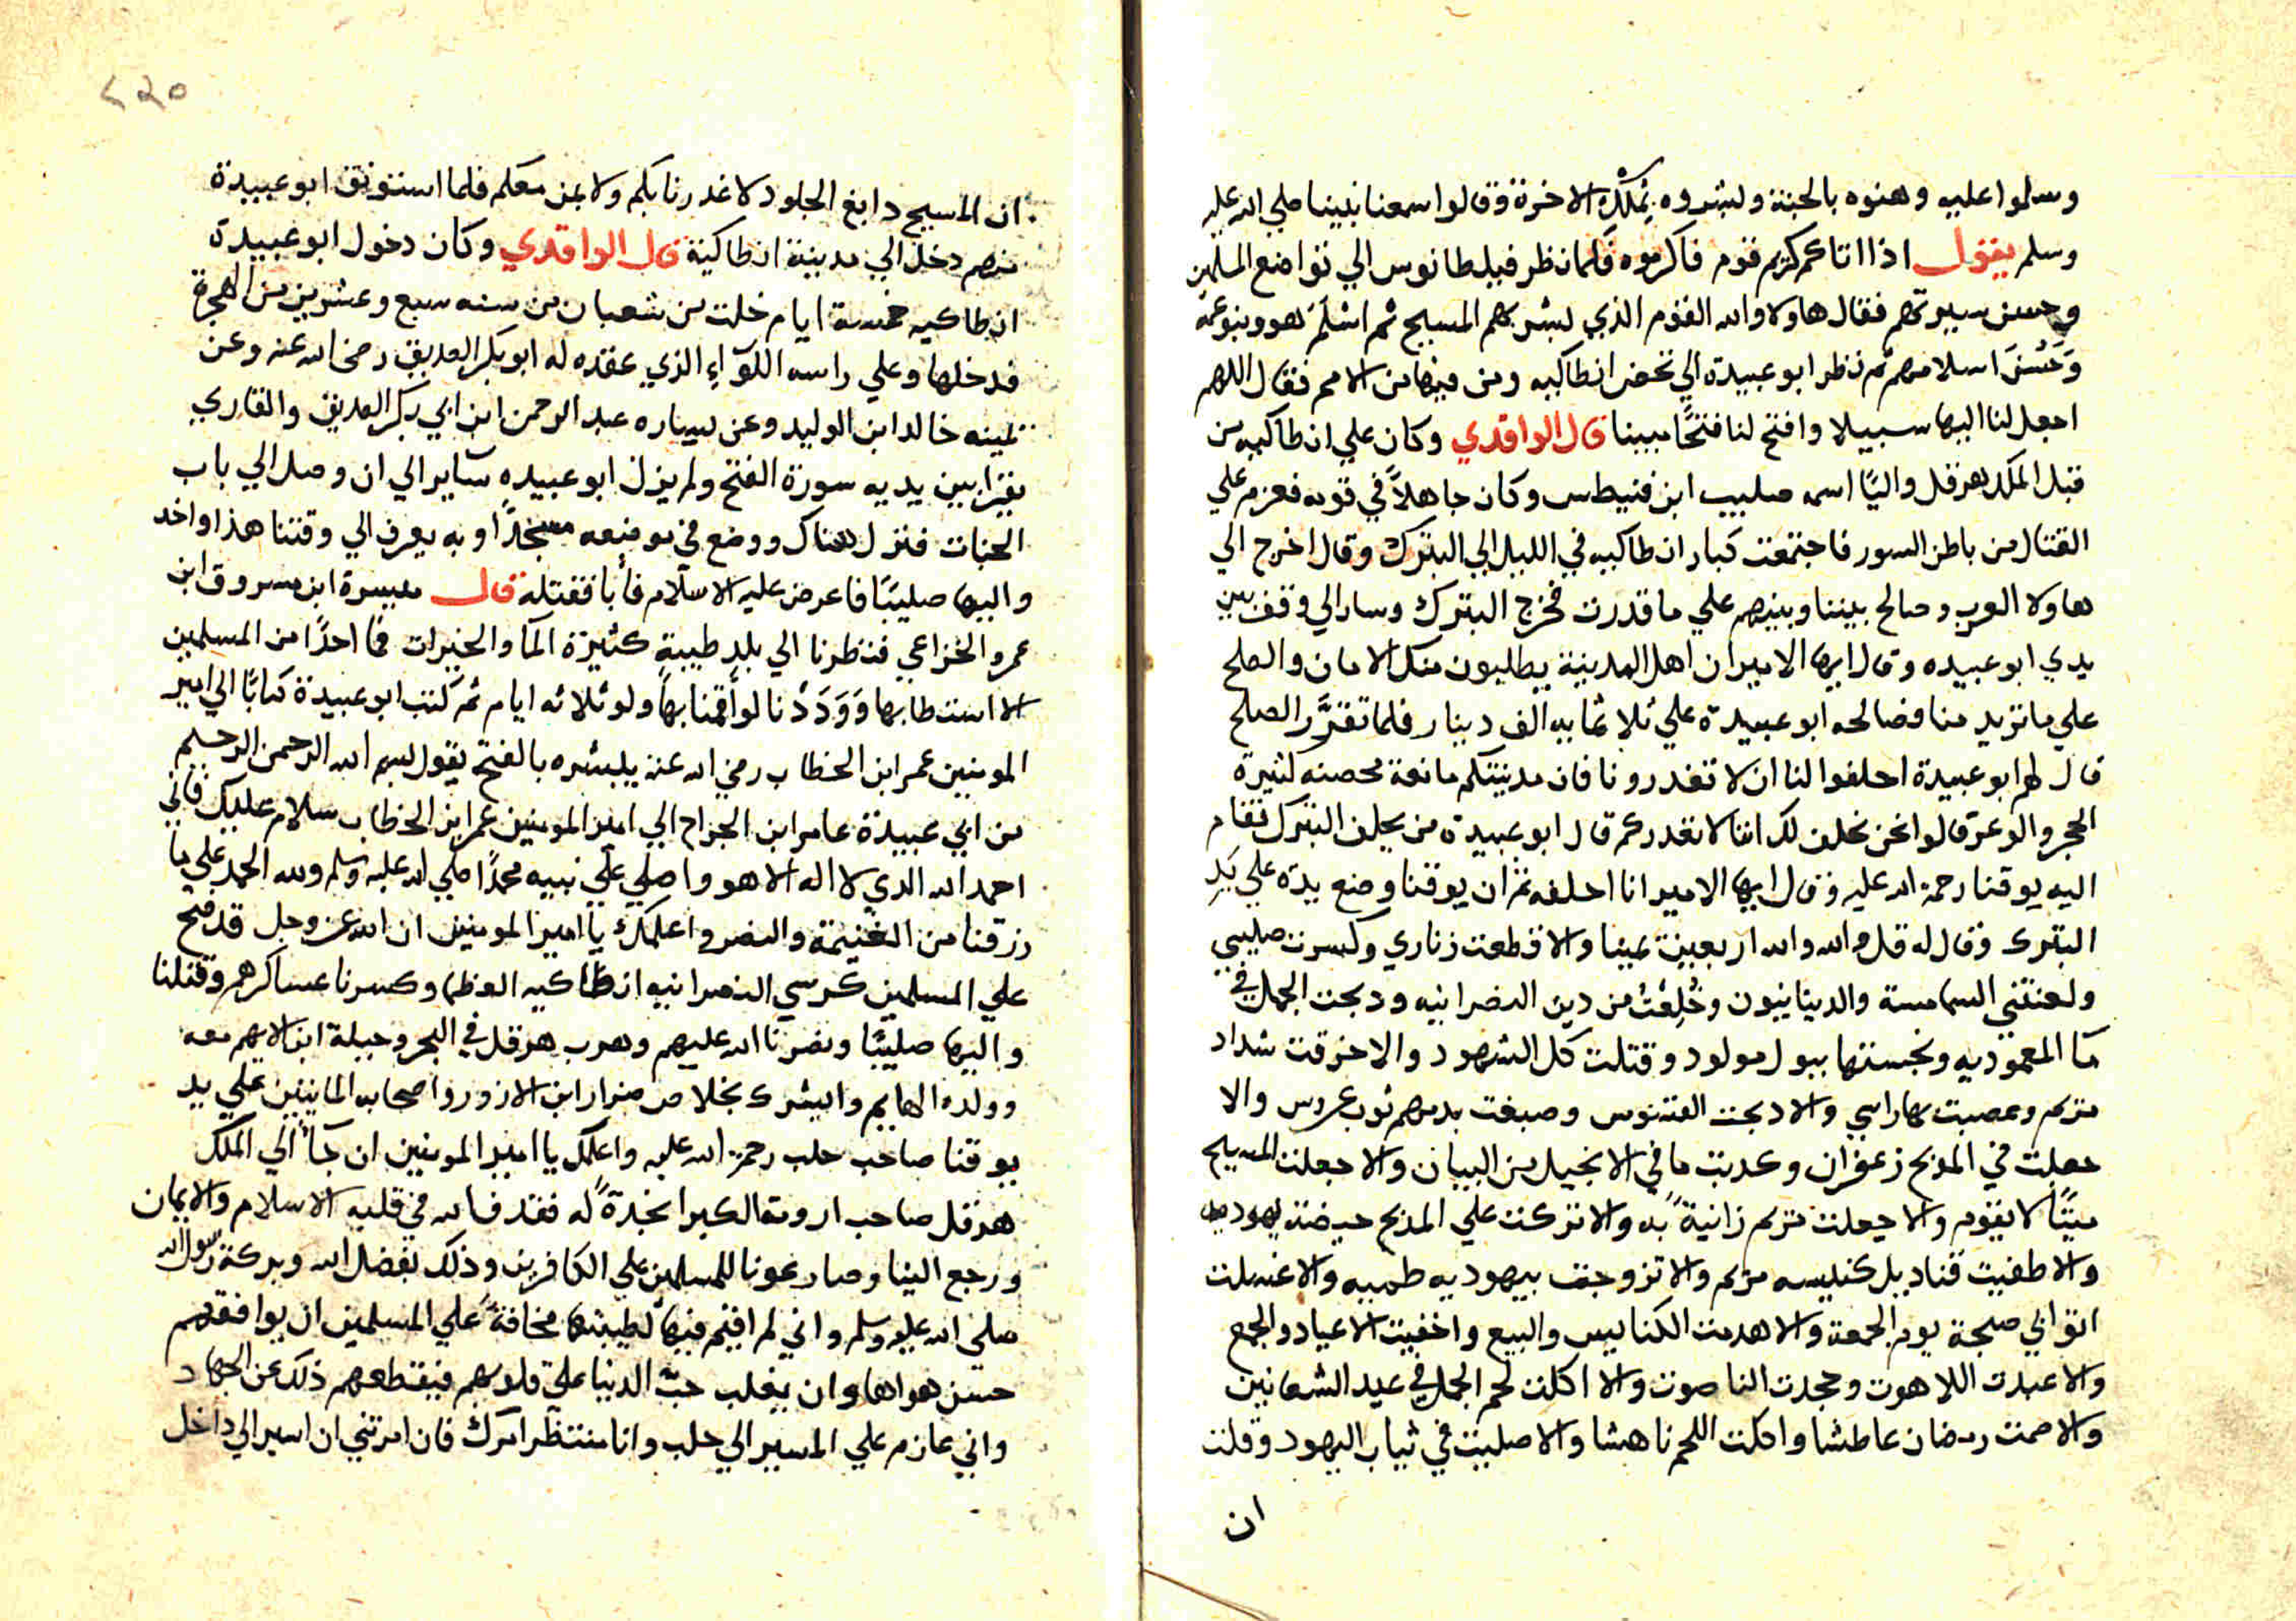 وسلموا عليه وهنوه بالجنة وبشروه بملك الاخرة وقالوا سمعنا نبينا صلي الله عليه
وسلم يقول اذا اتاكم كريم قوم فاكرموه فلما نظر فيلطانوس الي تواضع المسلمين
وحسن سيرتهم فقال هاولا والله القوم الذي بشر بهم المسيح ثم اسلم هو وبنو عمه
وحسن اسلامهم ثم نظر ابو عبيدة الي تحصن انطاكيه ومن فيها من الامم فقال اللهم
اجعل لنا اليها سبيلا وافتح لنا فتحا مبينا قال الواقدي وكان علي انطاكيه من
قبل الملك هرقل واليا اسمه صليب ابن قنيطس وكان جاهلا في قومه فعزم علي
القتال من باطن السور فاجتمعت كبار انطاكيه في الليل الي البترك وقال اخرج الي
هاولا العرب وصالح بيننا وبينهم علي ما قدرت فخرج البترك وسار الي وقف بين
يدي ابو عبيده وقال ايها الامير ان اهل المدينة يطلبون منك الامان والصلح
علي ما تريد منا فصالحه ابو عبيدة علي ثلاثمايه الف دينار فلما تقرر الصلح
قال لهم ابو عبيدة احلفوا لنا ان لا تغدرونا فان مدينتكم مانعة محصنه كثيرة
الحجر والوعر قالوا نحن نحلف لك اننا لا نغدركم قال ابو عبيدة من يحلف البترك فقام
اليه يوقنا رحمة الله عليه وقال ايها الامير انا احلفه ثم ان يوقنا وضع يده علي يد
البترك وقال له قل والله والله اربعين يمينا والا قطعت زناري وكسرت صليبي
ولعنتني الشمامسة والديانيون وخلعت من دين النصرانيه ودبحت الجمل في
ما المعموديه ونجستها ببول مولود وقتلت كل الشهود والا خرقت شداد
مريم وعصبت بها راسي والا دبحت القسوس وصبغت بدمهم ثوب عروس والا
جعلت في المدبح زعفران وكدبت ما في الانجيل من البيان والا جعلت المسيح
ميتا لا يقوم والا جعلت مريم زانية به والا تركت علي المدبح حيضة يهوديه
والا طفيت قناديل كنيسه مريم والا تزوجت بيهوديه طمبيه والا غسلت
اثوابي صبحة يوم الجمعة والا هدمت الكنايس والبيع واخفيت الاعياد والجمع
والا عبدت اللاهوت وجحدت الناصوت والا اكلت لحم الجمل في عيد الشعانين
والا صمت رمضان عاطشا واكلت اللحم ناهشا والا صليت في ثياب اليهود وقلت
ان
٤٢٥
ان المسيح دابغ الجلود لا غدرنا بكم ولا بمن معكم فلما استوثق ابو عبيدة
منهم دخل الي مدينة انطاكية قال الواقدي وكان دخول ابو عبيدة
انطاكيه خمسة ايام خلت من شعبان من سنه سبع وعشرين من الهجرة
فدخلها وعلي راسه اللواء الذي عقده له ابو بكر الصديق رضي الله عنه وعن
يمينه خالد ابن الوليد وعن يساره عبد الرحمن ابن ابي بكر الصديق والقاري
يقرا بين يديه سورة الفتح ولم يزل ابو عبيده ساير الي ان وصل الي باب
الجنات فنزل هناك ووضع في موضعه مسجدا وبه يعرف الي وقتنا هذا واخد
واليها صليبا فاعرض عليه الاسلام فابا فقتله قال ميسرة ابن مسروق ابن
عمرو الخزاعي فنظرنا الي بلد طيبة كثيرة الما والخيرات فما احدا من المسلمين
الا استطابها ووددنا لو اقمنا بها ولو ثلاثه ايام ثم كتب ابو عبيدة كتابا الي امير
المومنين عمر ابن الخطاب رضي الله عنه يبشره بالفتح يقول بسم الله الرحمن الرحيم
من ابي عبيدة عامر ابن الجراح الي امير المومنين عمر ابن الخطاب سلام عليك فاني
احمد الله الذي لا اله الا هو واصلي علي نبيه محمدا صلي الله عليه وسلم ولله الحمد علي ما
رزقنا من الغنيمة والنصر واعلمك يا امير المومنين ان الله عز وجل قد فتح
علي المسلمين كرسي النصرانيه انطاكيه العظما وكسرنا عساكرهم وقتلنا
واليها صليبا ونصرنا الله عليهم وهرب هرقل في البحر وجبلة ابن الايهم معه
وولده الهايم وابشرك بخلاص ضرار ابن الازور واصحابه المايتين علي يد
يوقنا صاحب حلب رحمة الله عليه واعلمك يا امير المومنين ان جآ الي الملك
هرقل صاحب ارومة الكبرا نجدة له فقذف الله في قلبه الاسلام والايمان
ورجع الينا وصار عونا للمسلمين علي الكافرين وذلك بفضل الله وبركة رسول الله
صلي الله عليه وسلم واني لم اقيم فيها لطيبتها مخافة علي المسلمين ان يوافقهم
حسن هواها وان يغلب حب الدنيا علي قلوبهم فيقطعهم ذلك عن الجهاد
واني عازم علي المسير الي حلب وانا منتظر امرك فان امرتني ان اسير الي داخل